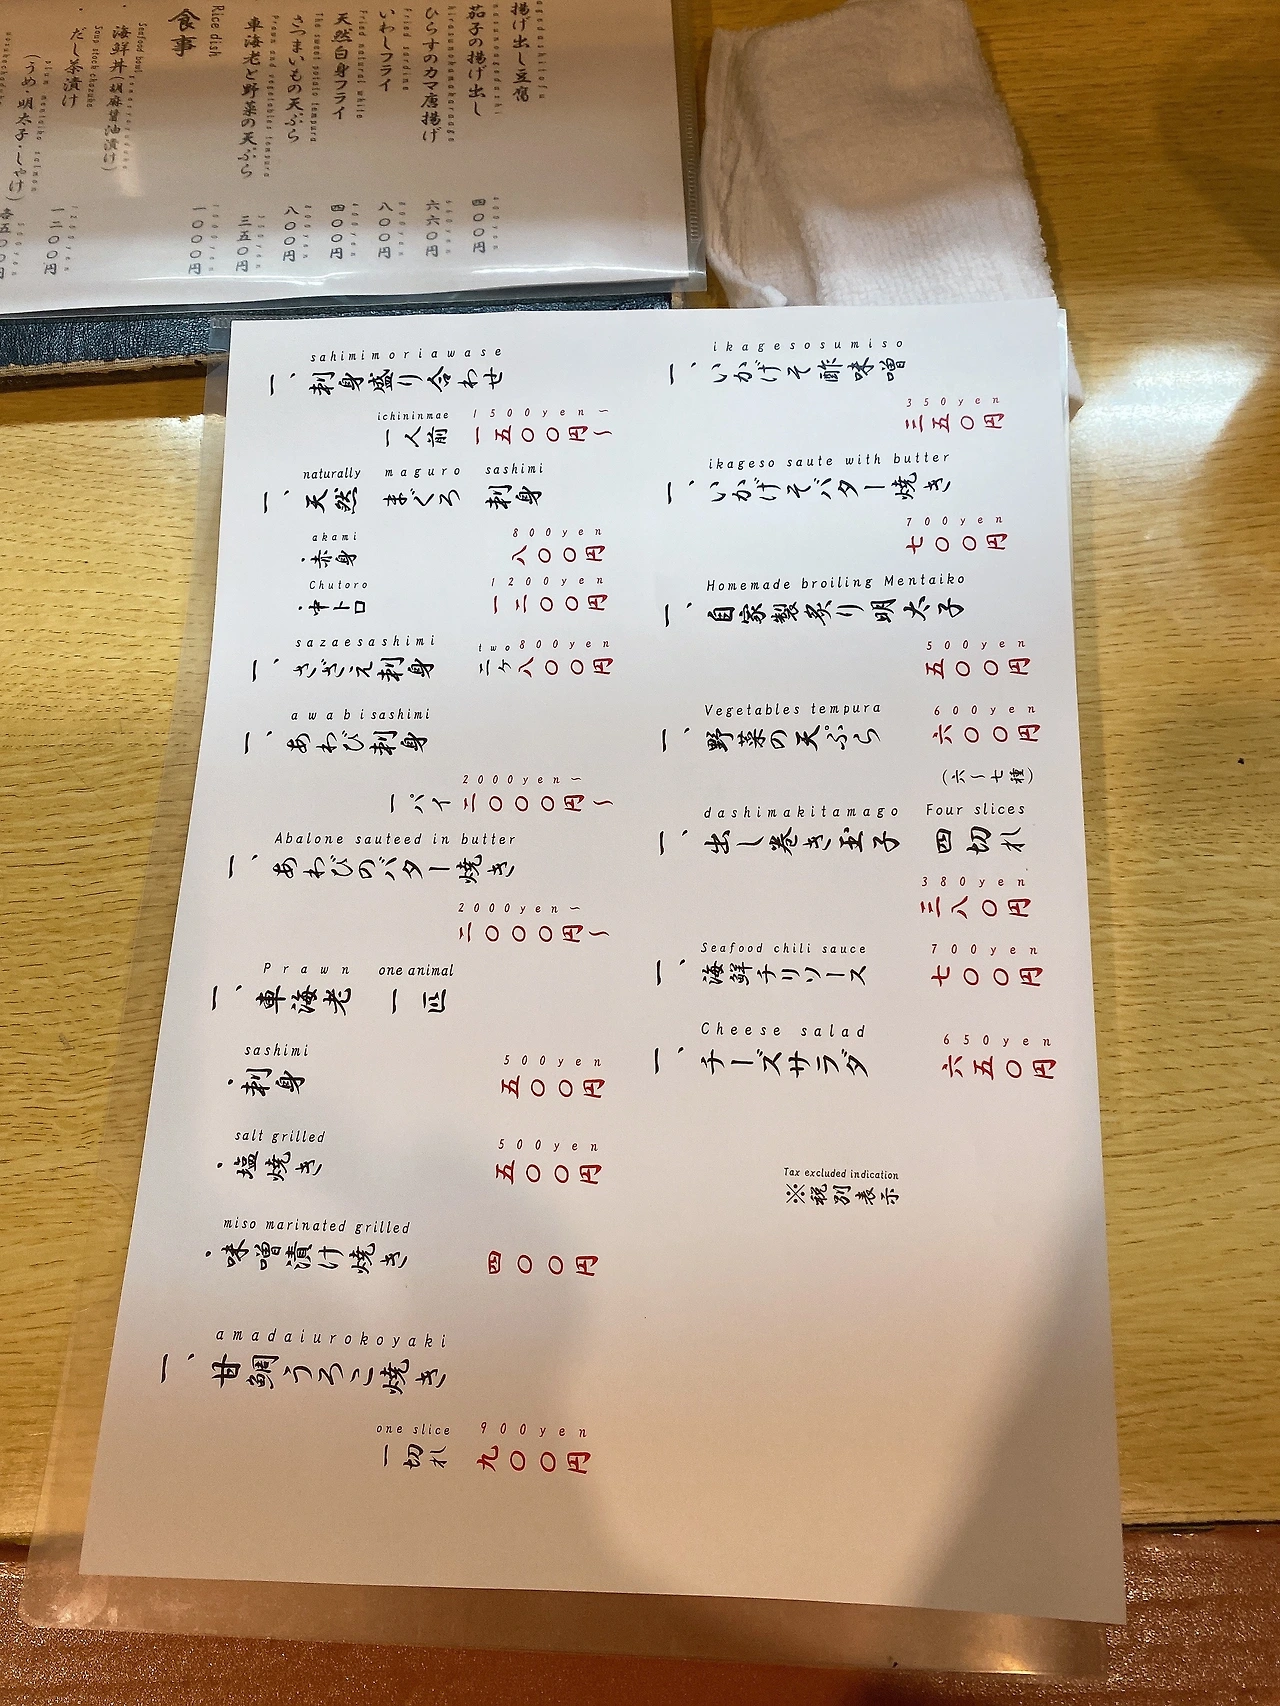 揚げ出し豆腐
茄子の揚げ出し
四〇〇円
ひらすのカマ唐揚げ
六六〇円
Fried sardine
いわしフライ
八〇〇円
Fried natural white
天然白身フライ
四〇〇円
The sweet potato tempura
さつまいもの天ぷら
八〇〇円
Prawn and vegetables tempura
車海老と野菜の天ぷら
三五〇円
Rice dish
食事
一〇〇〇円
Seafood bowl
海鮮丼(胡麻醤油漬け)
Soup stock chazuke
・だし茶漬け
一二〇〇円
plum mentaiko salmon
(うめ・明太子・しゃけ)
各五〇〇円
sahimimoriawase
一、刺身盛り合わせ
ichininmae 1500yen～
一人前 一五〇〇円～
naturally maguro sashimi
一、天然 まぐろ 刺身
akami 800yen
・赤身 八〇〇円
Chutoro 1200yen
・中トロ 一二〇〇円
sazaesashimi two800yen
一、さざえ刺身 二ヶ八〇〇円
awabisashimi
一、あわび刺身
2000yen～
一パイ 二〇〇〇円～
Abalone sauteed in butter
一、あわびのバター焼き
2000yen～
二〇〇〇円～
Prawn one animal
一、車海老 一匹
sashimi 500yen
・刺身 五〇〇円
salt grilled 500yen
・塩焼き 五〇〇円
miso marinated grilled
・味噌漬け焼き 四〇〇円
amadaiurokoyaki
一、甘鯛うろこ焼き
one slice 900yen
一切れ 九〇〇円
ikagesosumiso
一、いかげそ酢味噌
350yen
三五〇円
ikageso saute with butter
一、いかげそバター焼き
700yen
七〇〇円
Homemade broiling Mentaiko
一、自家製炙り明太子
500yen
五〇〇円
Vegetables tempura 600yen
一、野菜の天ぷら 六〇〇円
(六～七種)
dashimakitamago Four slices
一、出し巻き玉子 四切れ
380yen
三八〇円
Seafood chili sauce 700yen
一、海鮮チリソース 七〇〇円
Cheese salad 650yen
一、チーズサラダ 六五〇円
Tax excluded indication
※税別表示